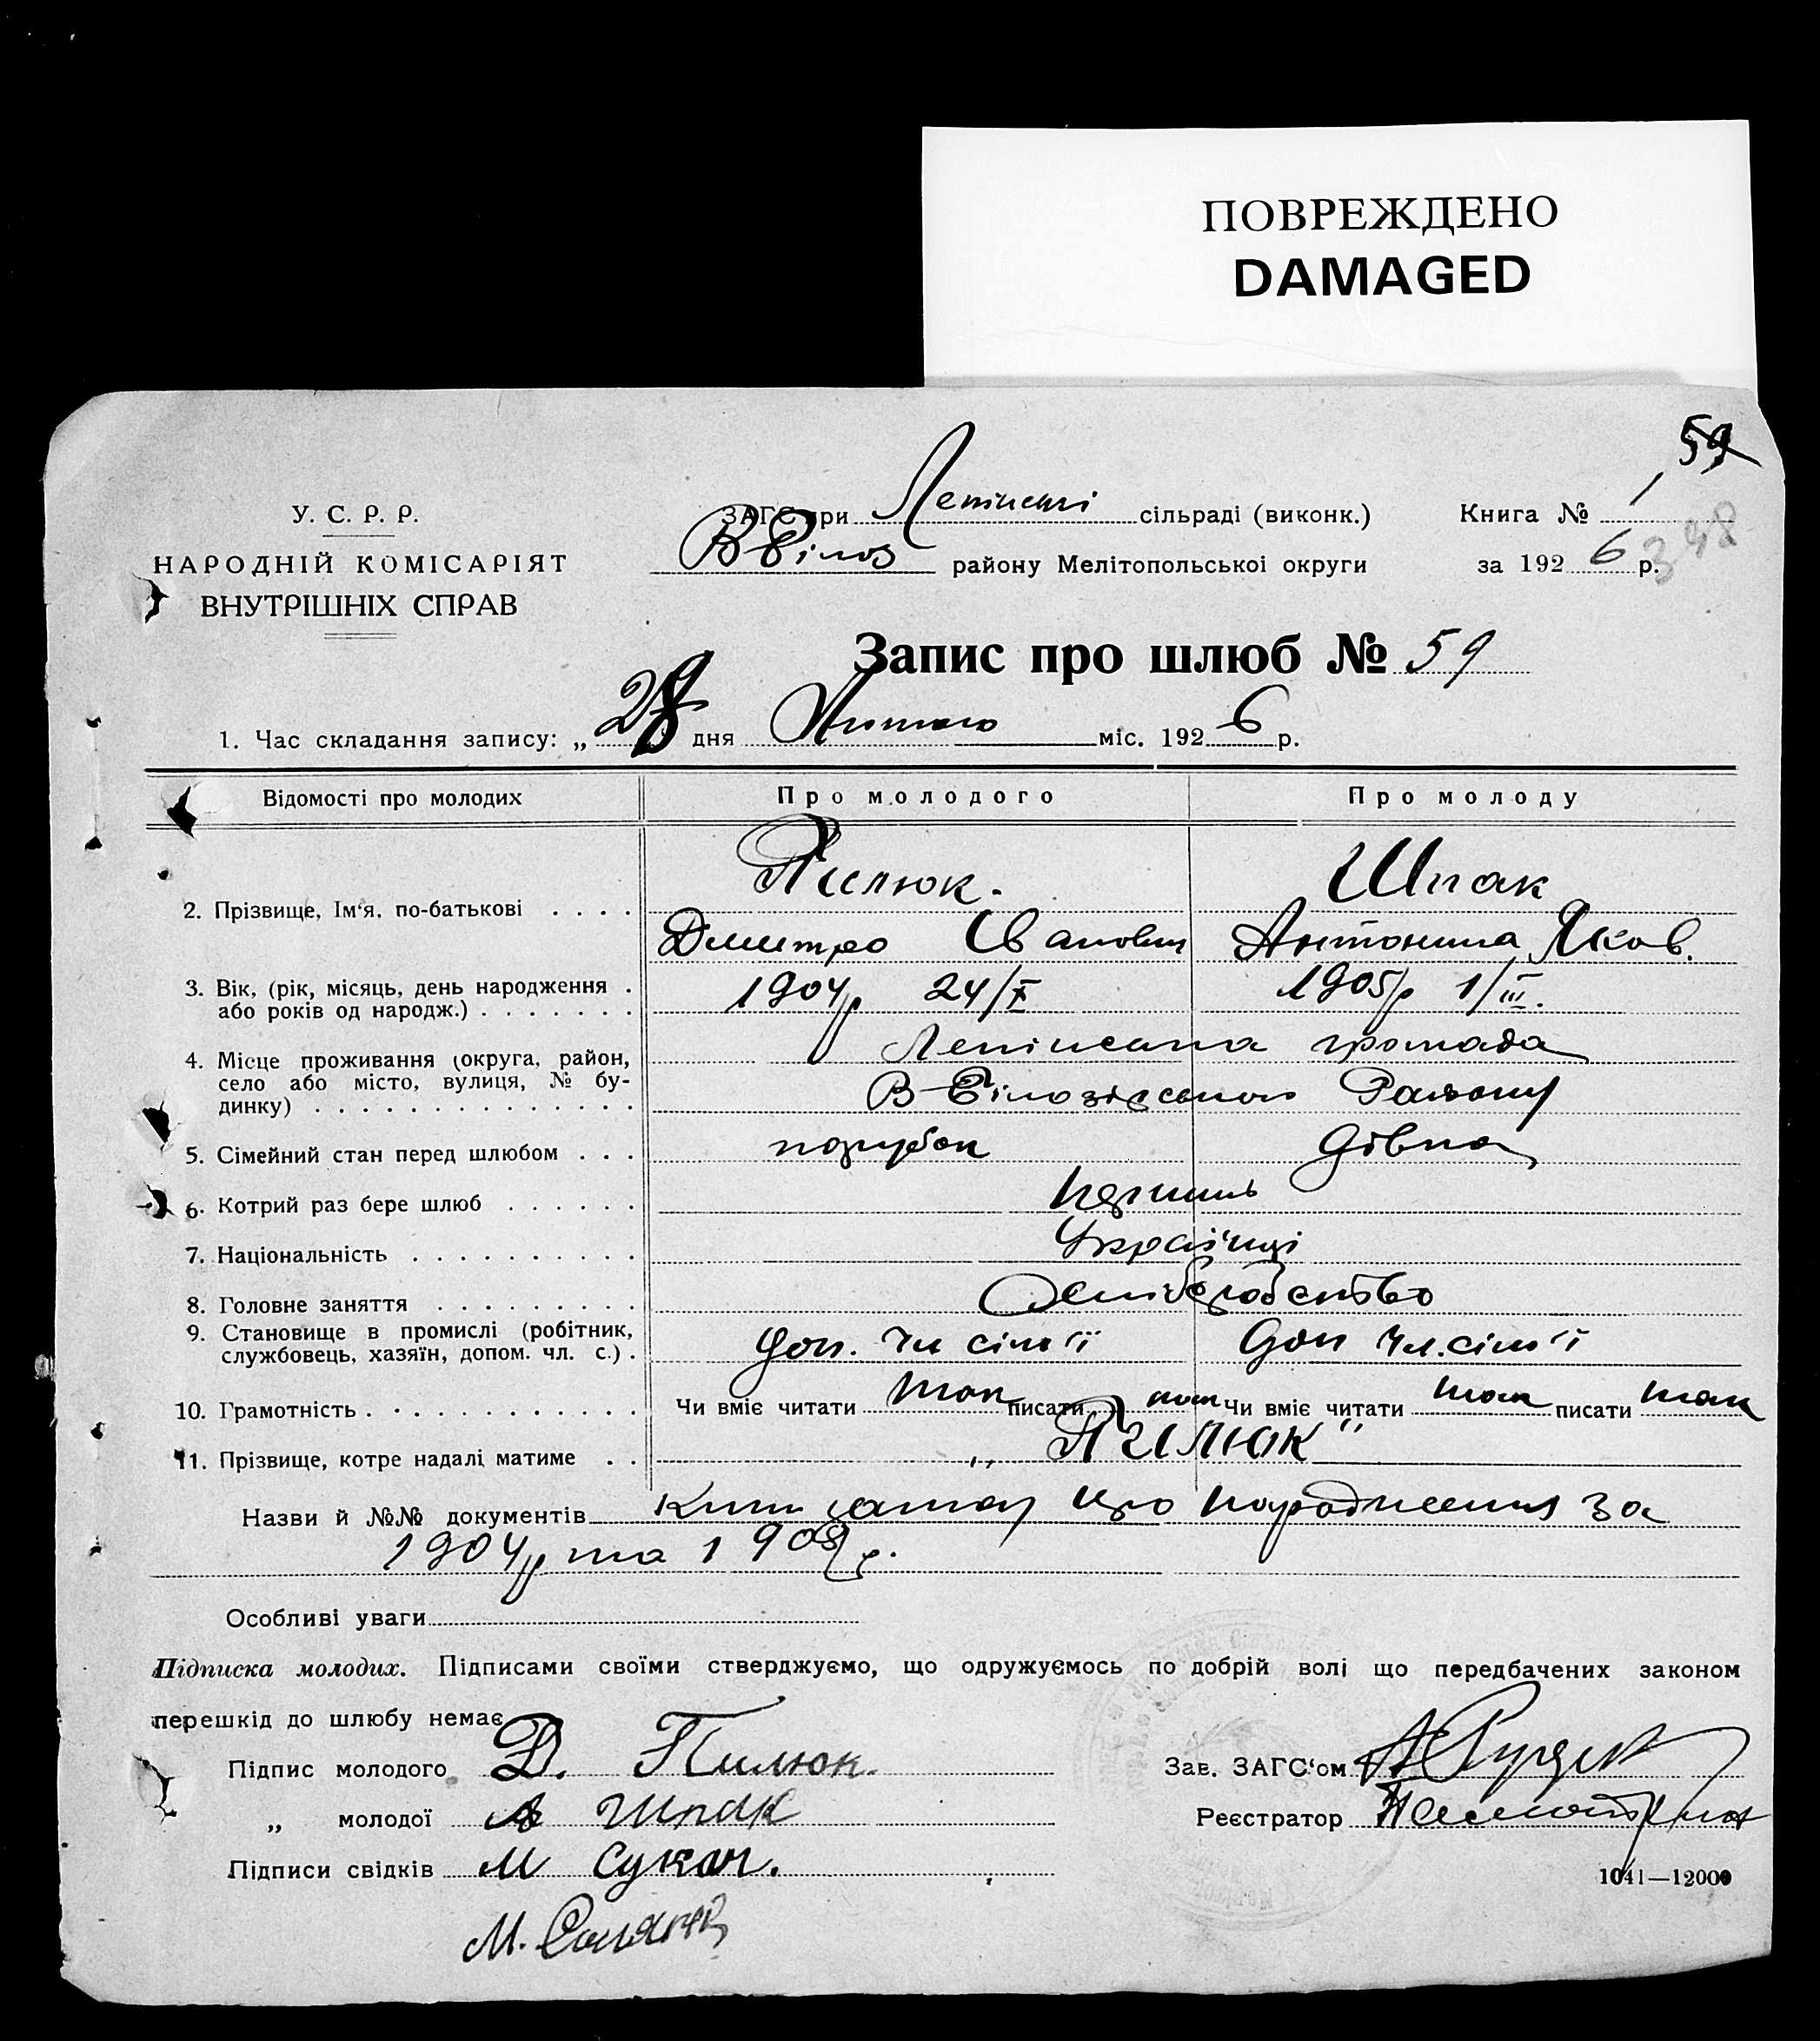 ПОВРЕЖДЕНО
DAMAGED
59
У. С. Р. Р.
НАРОДНІЙ КОМІСАРІЯТ
ВНУТРІШНІХ СПРАВ
ЗАГС при сільраді (виконк.) Книга № 1
В-Білоз району Мелітопольської округи за 1926 р.
398
Запис про шлюб № 59
1. Час складання запису: „ дня Лютого міс. 1926 р.
Відомості про молодих Про молодого Про молоду
Пилюк. Шпак
2. Прізвище, Ім‘я, по-батькові . . . .
Дмитро Іванович Антонина Яков.
3. Вік, (рік, місяць, день народження . 1904р 24/X 1905р 1/III.
або років од народж.) . . . . . . .
4. Місце проживання (округа, район, громада
село або місто, вулиця, № бу-
динку) . . . . . . . . . . . . . . В-Білозірського Району
5. Сімейний стан перед шлюбом . . . парубок дівка
6. Котрий раз бере шлюб . . . . . .
7. Національність . . . . . . . . . . Українці
8. Головне заняття . . . . . . . . . Хліборобство
9. Становище в промислі (робітник,
службовець, хазяїн, допом. чл. с.) . Доп. чл сім'ї Доп чл. сім'ї
10. Грамотність . . . . . . . . . . . . Чи вміє читати так писати так Чи вміє читати так писати так
11. Прізвище, котре надалі матиме . . „Пилюк"
Назви й №№ документів про народження за
1904р та 1905 р.
Особливі уваги
Підписка молодих. Підписами своїми стверджуємо, що одружуємось по добрій волі що передбачених законом
перешкід до шлюбу немає
Підпис молодого Д. Пилюк. Зав. ЗАГС‘ом
„ молодої А Шпак Реєстратор
Підписи свідків М Сукач.
1041—12000
М.